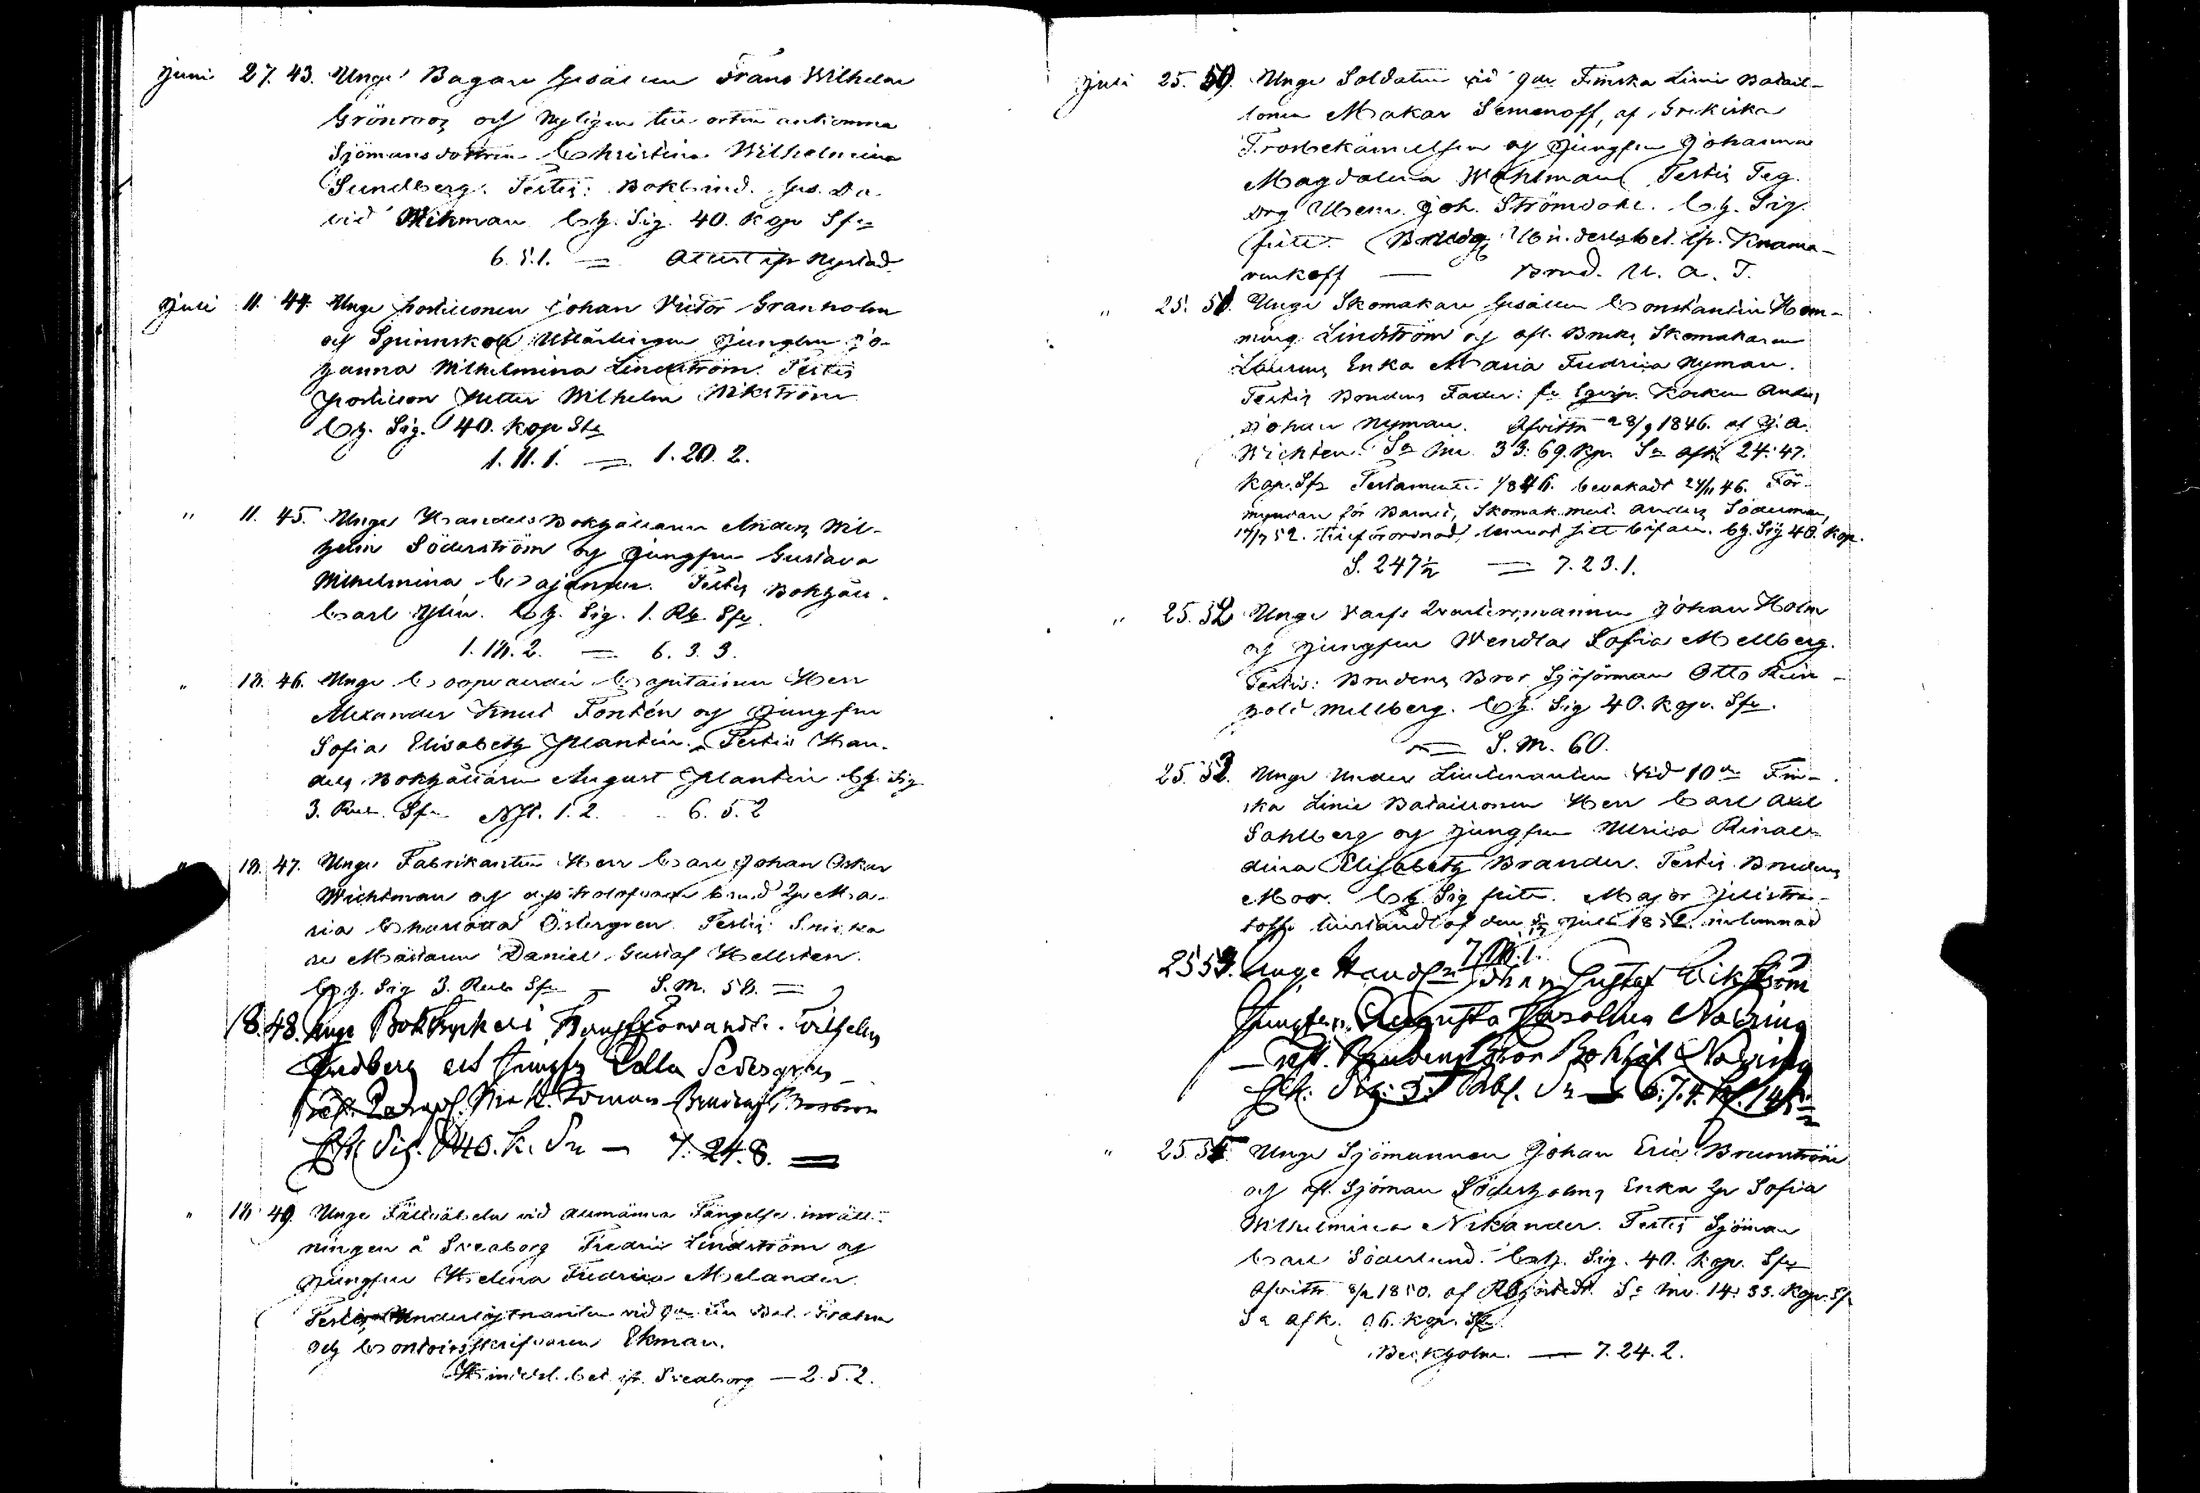 Juni 27. 43. Unge Bagare Gesällen Frans Wilhelm
Grönroos och nyligen till orten ankomna
Sjömansdottren Christina Wilhelmina
Sundberg. Testis: Bokbind. Ges. Da-
vid Wikman Ch. Sig. 40. kop Sfr
6.5.1. = Attest ifr Nystad.
Juli 11. 44. Unge Postillonen Johan Victor Granholm
och Spinnskole Utlärlingen Jungfrun Jo-
hanna Wilhelmina Lindström. Testis
Postillon Petter Wilhelm Wikström
Ch. Sig. 40. kop Sfr
1.11.1. = 1.20.2.
" 11. 45. Unge Handels Bokhållaren Anders Wil-
helm Söderström och Jungfrun Gustava
Wilhelmina Cajander. Testis Bokhåll.
Carl Ch. Sig. 1. Rb. Sfr.
1.18.2. = 6.3.3.
" 18. 46. Unge Coopvaerdie Capitainen Herr
Alexander Knut Fontén och Jungfru
Sofia Elisabeth Plantin. Testis Han-
dels Bokhållaren August Plantin Ch. Sig
3. Rub. Sfr 1.2. 6.5.2
" 18. 47. Unge Fabrikanten Herr Carl Johan Oskar
Wichtman och Ma-
ria Charlotta Östergren. Testis: Snicka
re Mästaren Daniel Gustaf Hellsten.
Ch. Sig 3. Rub Sfr — S.M. 58. =
18. 48. Unge Boktryckeri Konstförvandt. Vilhelm
Lindberg och Jungfr Ulla Sedergren
Test.
Sig. 40. k. Sr — 7.24.8. =
" 18. 49. Unge Fältväbeln vid allmänna Fängelse inrätt-
ningen å Sveaborg Fredric Lindström och
Jungfrun Helena Fredrica Melander.
Testis Underlöjtnanten vid Bat. Grahn
och Contoirsskrifvaren Ekman.
Hinderl. bet. ifr. Sveaborg — 2.5.2.
Juli 25. 50. Unge Soldaten vid 9de Finska Linie Batail-
lonen Makar Semenoff, af Grekiska
Trosbekännelsen och Jungfrun Johanna
Magdalena Wahlman Testis Teg.
Joh. Strömdahl. Ch. Sig.
fritt. ifr. Knama-
renkoff — Brud. U.A.T.
" 25. 51. Unge Skomakare Gesällen Constantin Hen-
ning Lindström och afl. Skomakaren
Enka Maria Fredrica Nyman.
Testis Brudens Fader: Karken Anders
Johan Nyman. Afvittr 28/9 1846. af J.A.
Wichten. Sa Inv. 33:69. kp. Sa afk 24:47.
kop. Sfr Testamente 1846. bevakadt 24/11 46. För-
myndare för Barnet, Skomak. mäst. Anders Söderman,
17/7 52. tillförordnad, lemnat sitt bifall. Ch. Sig 40. kop.
S. 247½ = 7.23.1.
" 25. 52 Unge Varfs Quartersmannen Johan Holm
och Jungfrun Wendla Sofia Mellberg.
Testis: Brudens Bror Sjöförman Otto Rein-
hold Mellberg. Ch. Sig 40. kop. Sfr.
= S.M. 60.
25. 53. Unge Under Lieutenanten vid 10de Fin-
ska Linie Bataillonen Herr Carl Axel
Sahlberg och Jungfrun Ulrica Rinal-
dina Elisabeth Brander. Testis Brudens
Mor. Ch. Sig fritt. Major
toffs tillstånd af den Juli 1852. inlemnad
7.18.1.
25 54. Unge Handln Johan Gustaf Wikström
Jungfrun Augusta Carolina Nobring
— Test. Brudens Bror Bokhål Nobring
Sig: 3. Rubl. Sr — 6.7.4.
" 25. 55. Unge Sjömannen Johan Eric Brunström
och afl. Sjöman Söderholms Enka Hr Sofia
Wilhelmina Nikander. Testis Sjöman
Carl Söderlund. Ch. Sig. 40. kop. Sfr
Afvittr 1850. af Sa Inv. 14:33. kop. Sfr
Sa afk. 96. kop. Sfr.
Beckholm. — 7.24.2.